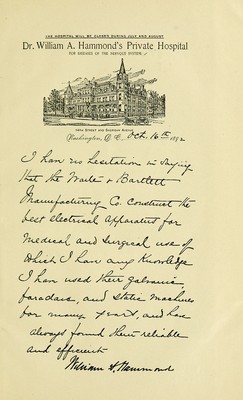 THE HOSPITAL WILL BE CLOSED DURING JULY AND AUGUST
Dr. William A. Hammond's Private Hospital
FOR DISEASES OF THE NERVOUS SYSTEM
14TH STREET AND SHERIDAN AVENUE
Washington, D. C., Oct. 16th 1892
I have no hesitation in saying
that the Waite & Bartlett
Manufacturing Co. construct the
best electrical apparatus for
medical and surgical use of
which I have any knowledge
I have used their galvanic,
faradaic, and static machines
for many years, and have
always found them reliable
and efficient
William A. Hammond